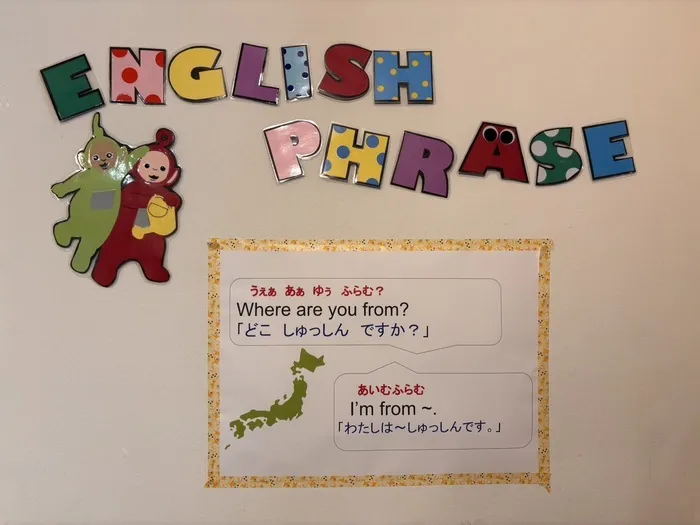 ENGLISH
PHRASE
うぇぁ あぁ ゆぅ ふらむ？
Where are you from?
「どこ しゅっしん ですか？」
あいむふらむ
I'm from ~.
「わたしは～しゅっしんです。」